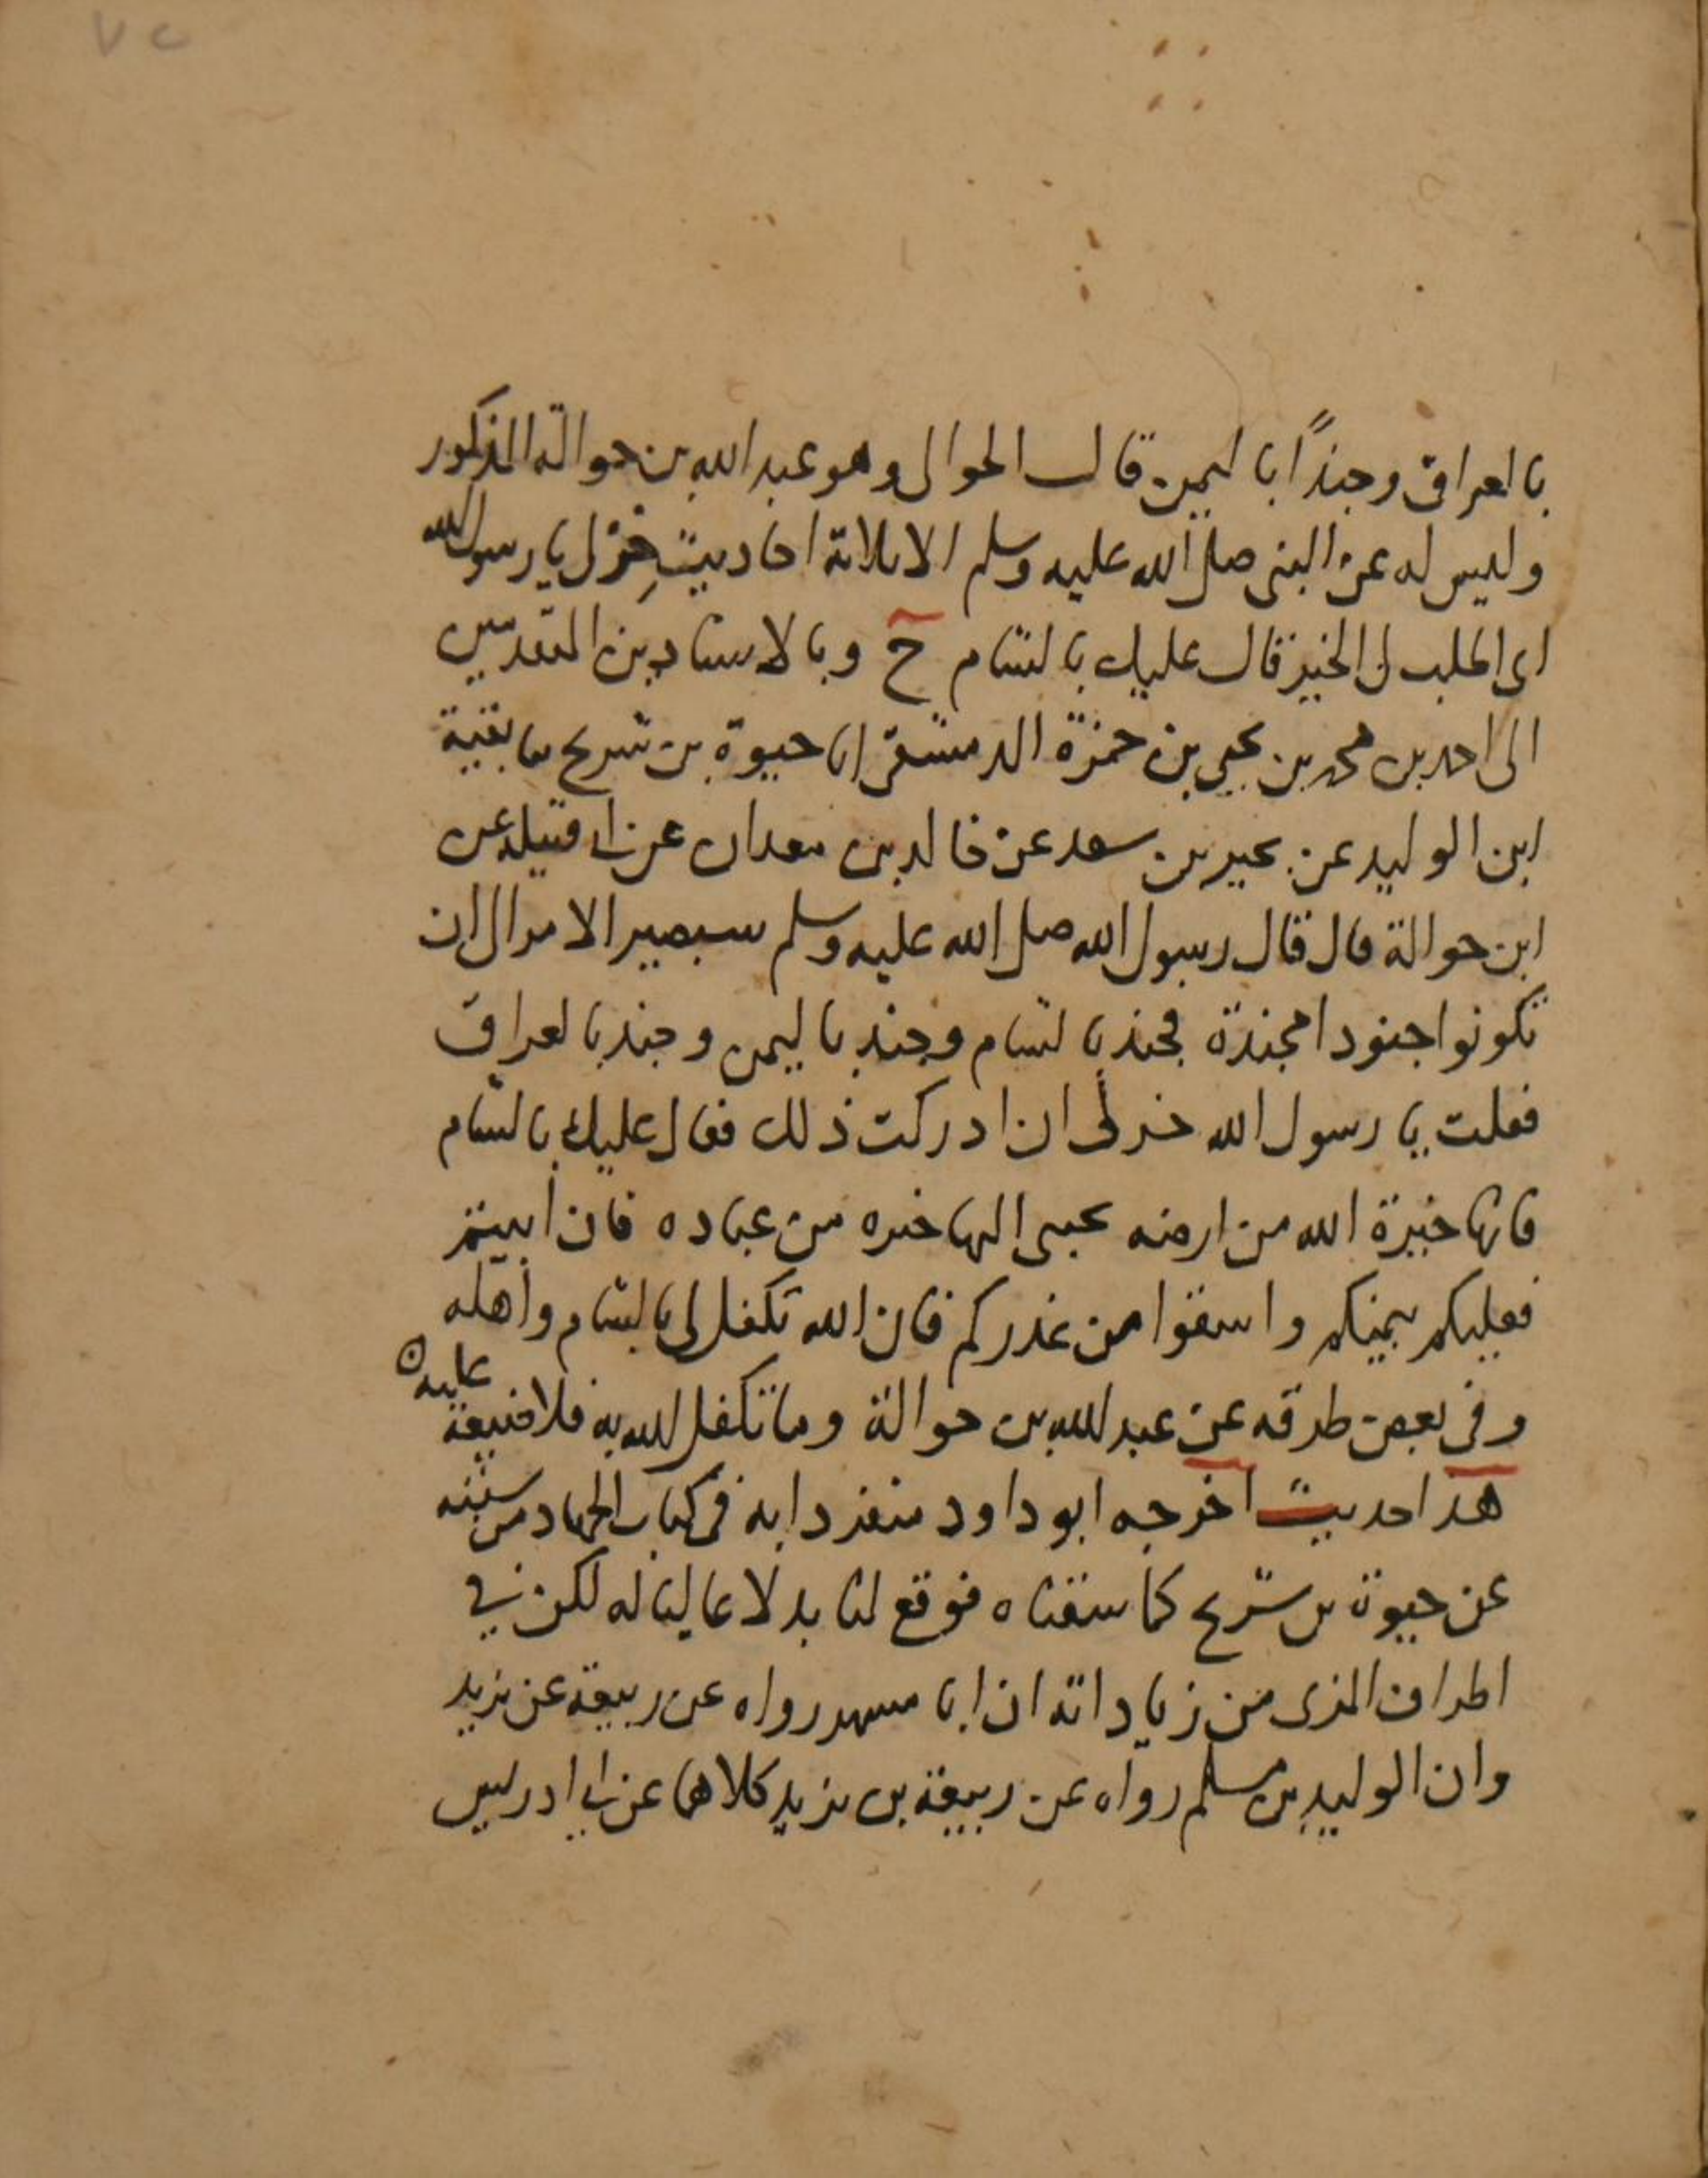 ٧٢
بالعراق وجنداً باليمن قال الحوالى وهو عبد الله بن حوالة المذكور
وليس له عن النبى صلى الله عليه وسلم الا ثلاثة احاديث خِرْ لى يا رسول الله
اى اطلب لى الخير قال عليك بالشام ح وبالاسنادين المتقدمين
الى احمد بن محمد بن يحيى بن حمزة الدمشقى انا حيوة بن شريح ثنا بقية
ابن الوليد عن بحير بن سعد عن خالد بن معدان عن ابى قتيلة عن
ابن حوالة قال قال رسول الله صلى الله عليه وسلم سيصير الامر الى ان
تكونوا جنودا مجندة فجند بالشام وجند باليمن وجند بالعراق
فقلت يا رسول الله خر لى ان ادركت ذلك فقال عليك بالشام
فانها خيرة الله من ارضه يجبى اليها خيرته من عباده فان ابيتم
فعليكم بيمنكم واسقوا من غدركم فان الله تكفل لى بالشام وأهله
وفى بعض طرقه عن عبد الله بن حوالة وما تكفل الله به فلا ضيعة عليه
هذا حديث اخرجه ابو داود منفردا به فى كتاب الجهاد من سننه
عن حيوة بن شريح كما سقناه فوقع لنا بدلا عاليا له لكن في
اطراف المزى من زياداته ان ابا مسهر رواه عن ربيعة عن يزيد
وان الوليد بن مسلم رواه عن ربيعة بن يزيد كلاهما عن ابى ادريس